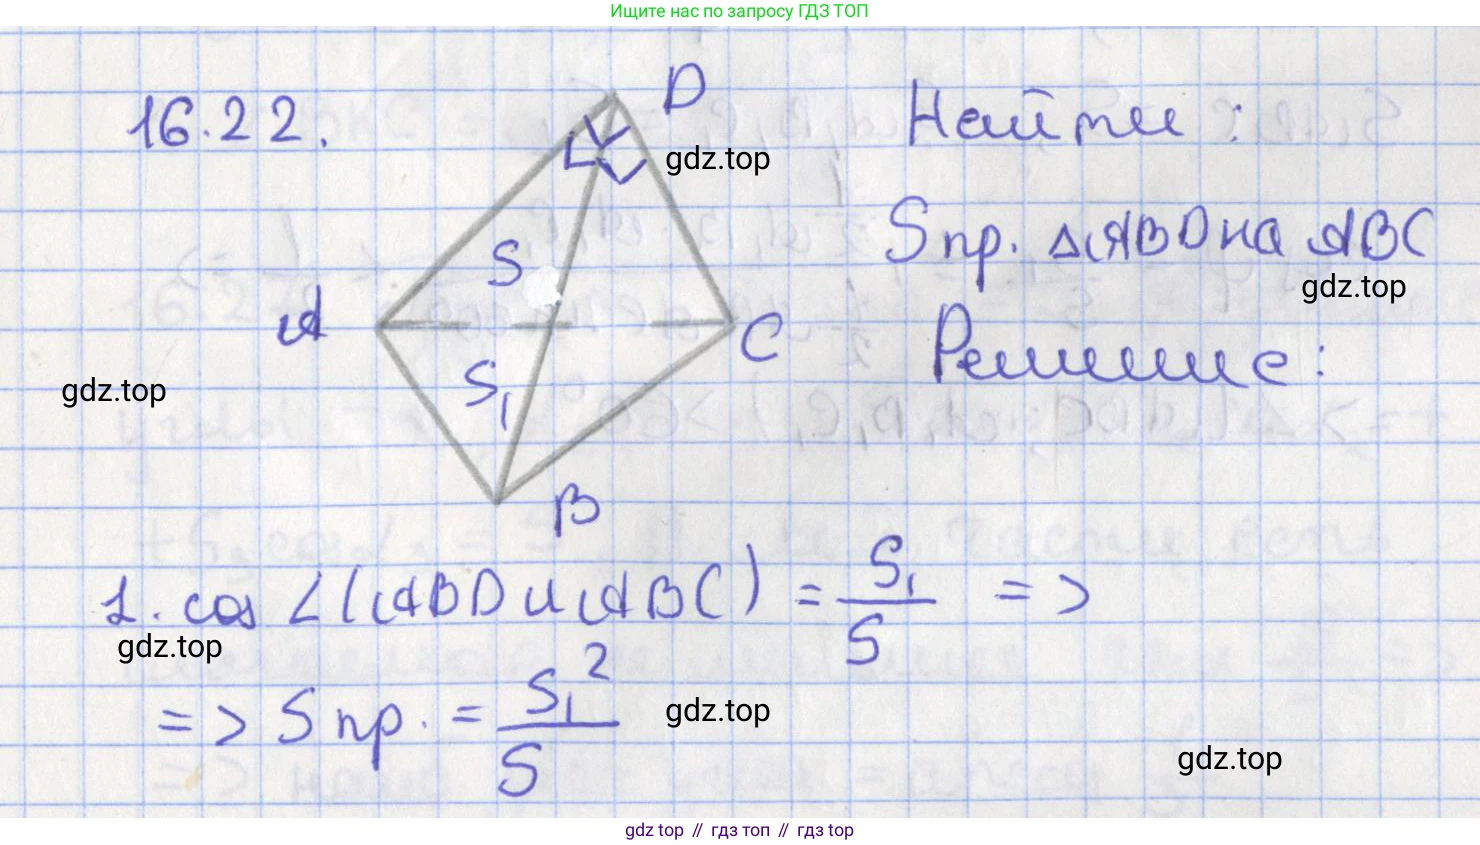 Ищите нас по запросу ГДЗ ТОП
16.22.
D
Найти:
gdz.top
Sпр. △ABD на ABC
S
gdz.top
A
C
Решение:
S₁
gdz.top
B
1. cos ∠(ABD и ABC) = S₁/S =>
gdz.top
=> Sпр. = S₁²/S
gdz.top
gdz.top
gdz top // гдз топ // gdz top